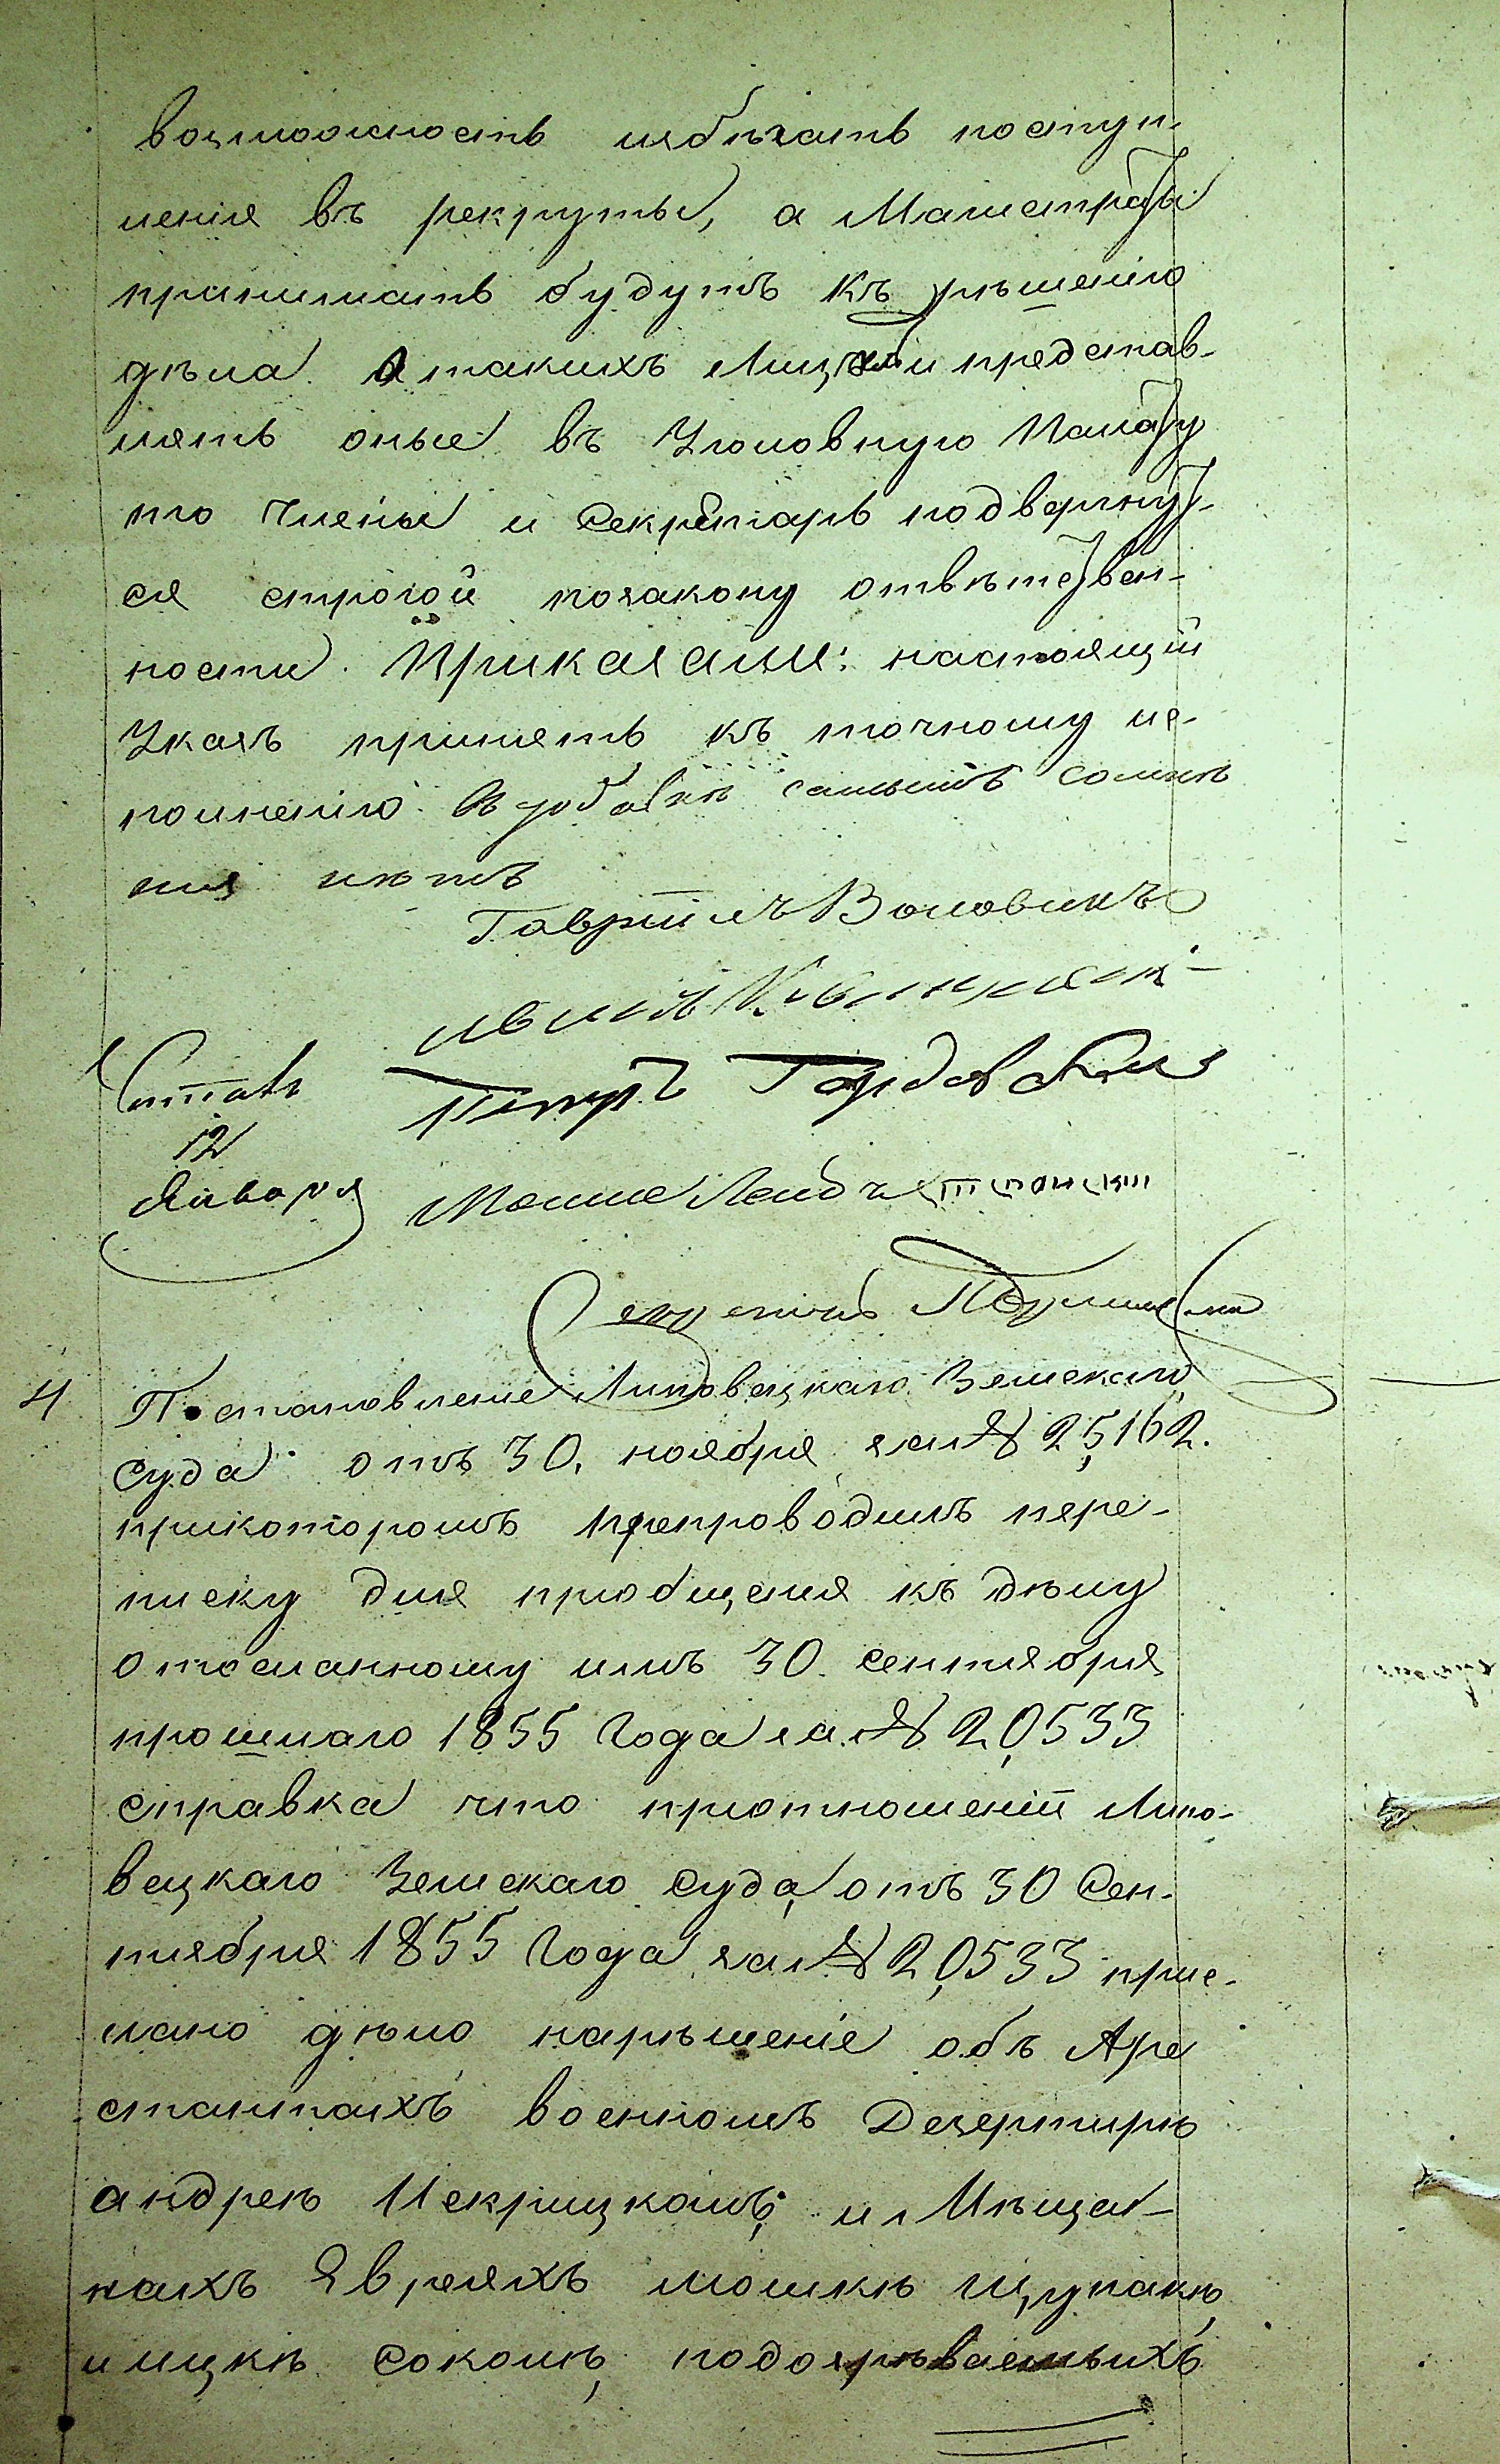 возможность избѣгать поступ-
ленія въ рекруты, а Магистраты
принимать будутъ къ рѣшенію
дѣла о такихъ лицахъ и представ-
лять оные въ Уголовную Палату
то Члены и Секретарь подвергнут-
ся строгой позакону отвѣтствен-
ности. Приказали: настоящій
Указъ принять къ точному ис-
полненію. въ добавкѣ
нія нѣтъ
Гавріилъ Воловикъ
Петръ Гордовскій
Читалъ
12
Января
Мошко Лейбъ
Секретарь
4 Постановленіе Липовецкаго Земскаго
Суда отъ 30. ноября за № 25,162.
прикоторомъ препроводилъ пере-
писку для пріобщенія къ дѣлу
отосланному имъ 30. сентября
прошлаго 1855 Года за № 20,533
справка что приотношеніи Липо-
вецкаго Земскаго Суда, отъ 30 Сен-
тября 1855 Года за № 20,533 прис-
лано дѣло нарѣшеніе объ Аре
стантахъ военномъ Дезертирѣ
андреѣ Некрицкомъ, и Мѣща-
нахъ Явреяхъ мошкѣ Щупакѣ,
и ицкѣ Соколѣ, подозрѣваемыхъ